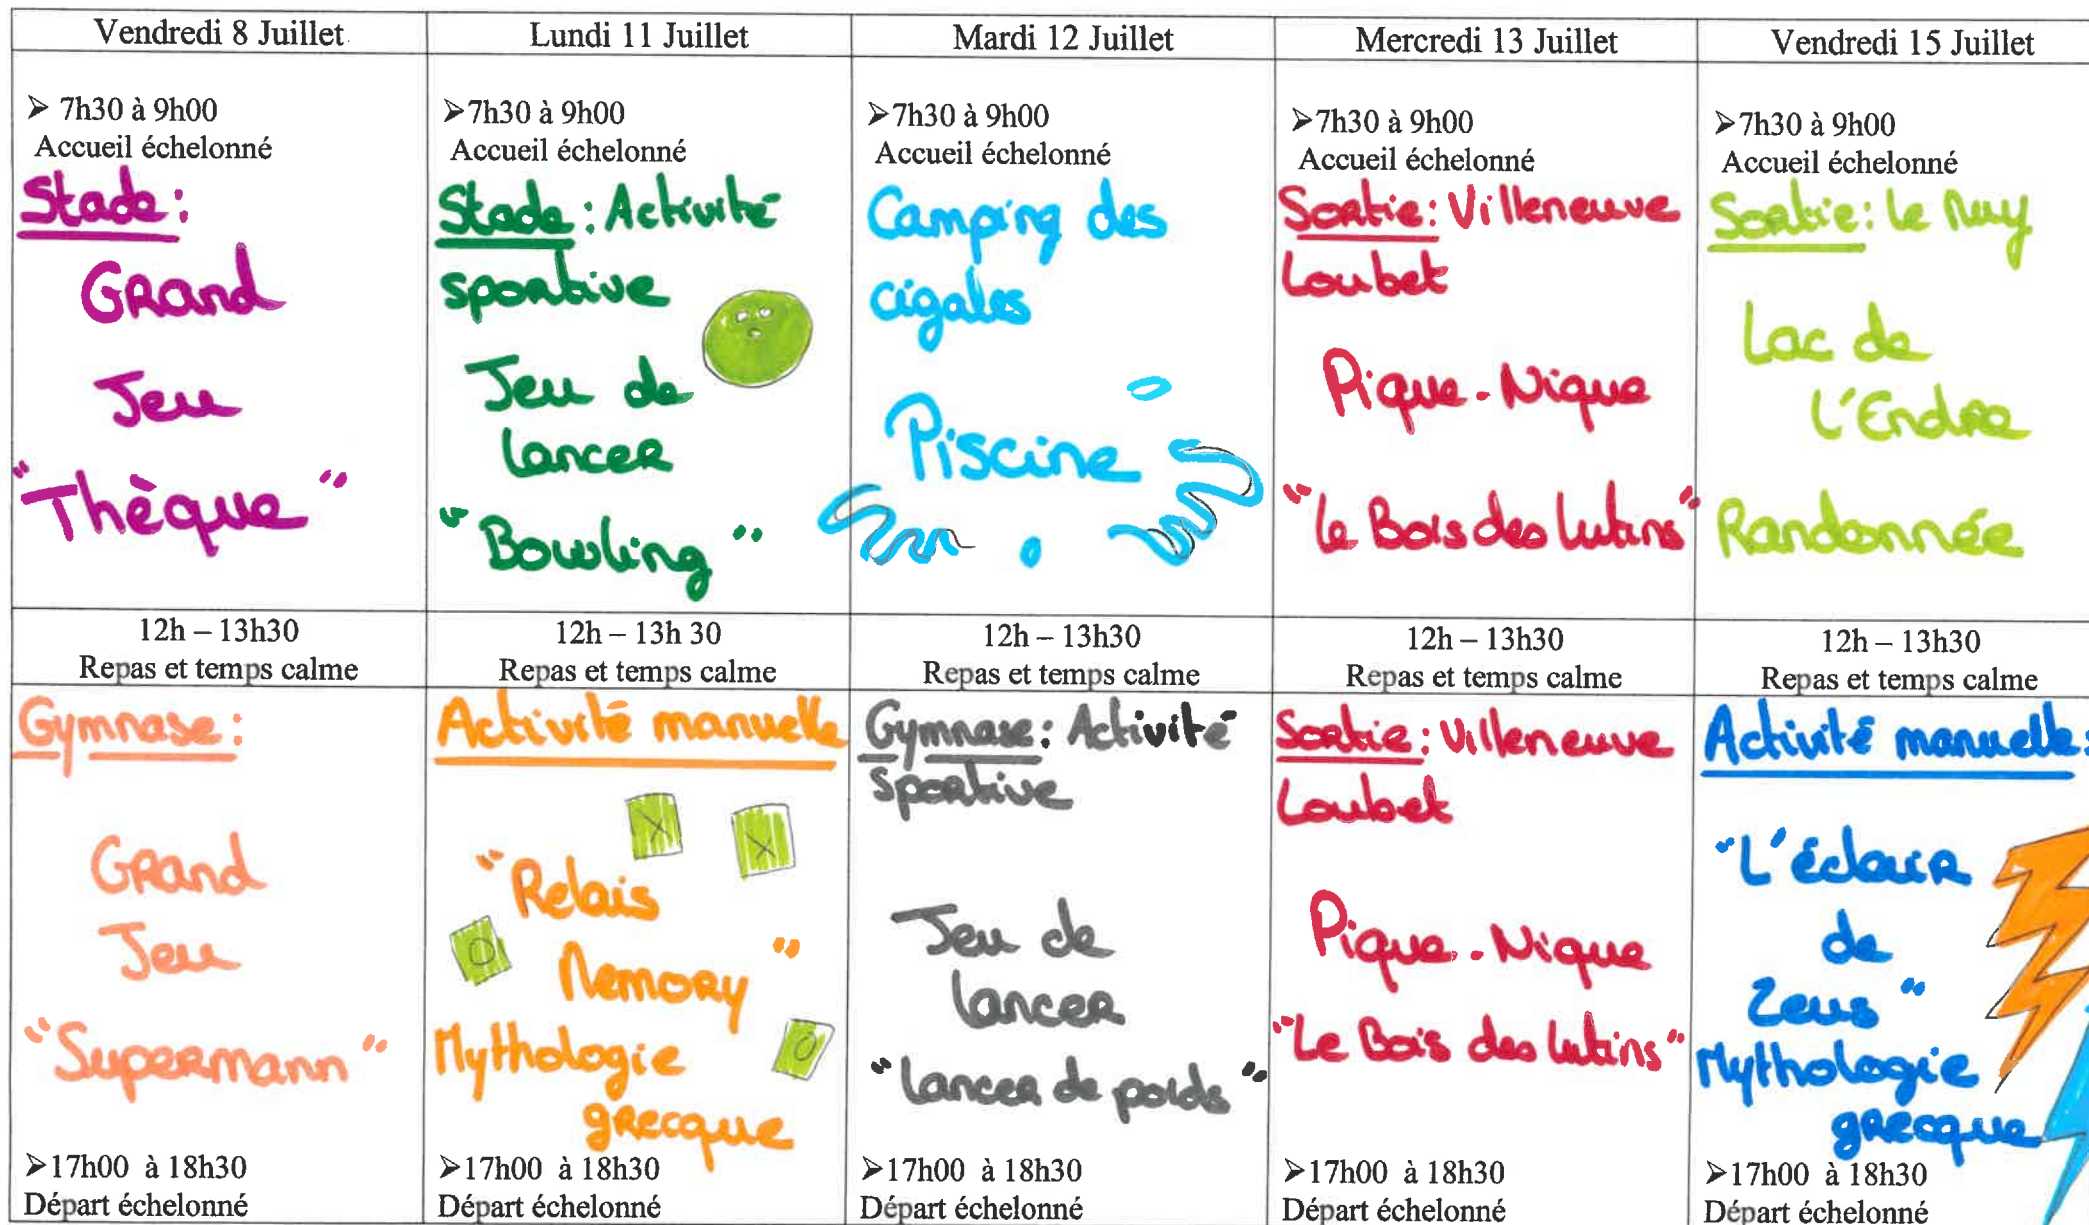 Vendredi 8 Juillet
Lundi 11 Juillet
Mardi 12 Juillet
Mercredi 13 Juillet
Vendredi 15 Juillet
➢ 7h30 à 9h00
Accueil échelonné
Stade:
GRand
Jeu
"Thèque"
➢7h30 à 9h00
Accueil échelonné
Stade: Activité
sportive
Jeu de
lancer
"Bowling"
➢7h30 à 9h00
Accueil échelonné
Camping des
cigales
Piscine
➢7h30 à 9h00
Accueil échelonné
Sortie: Villeneuve
Loubet
Pique-Nique
"Le Bois des lutins"
➢7h30 à 9h00
Accueil échelonné
Sortie: Le Muy
Lac de
L'Endre
Randonnée
12h – 13h30
Repas et temps calme
12h – 13h 30
Repas et temps calme
12h – 13h30
Repas et temps calme
12h – 13h30
Repas et temps calme
12h – 13h30
Repas et temps calme
Gymnase:
GRand
Jeu
"Supermann"
➢17h00 à 18h30
Départ échelonné
Activité manuelle
"Relais
Memory"
Mythologie
grecque
➢17h00 à 18h30
Départ échelonné
Gymnase: Activité
sportive
Jeu de
lancer
"lancer de poids"
➢17h00 à 18h30
Départ échelonné
Sortie: Villeneuve
Loubet
Pique-Nique
"Le Bois des lutins"
➢17h00 à 18h30
Départ échelonné
Activité manuelle:
"L'éclair
de
Zeus"
Mythologie
grecque
➢17h00 à 18h30
Départ échelonné